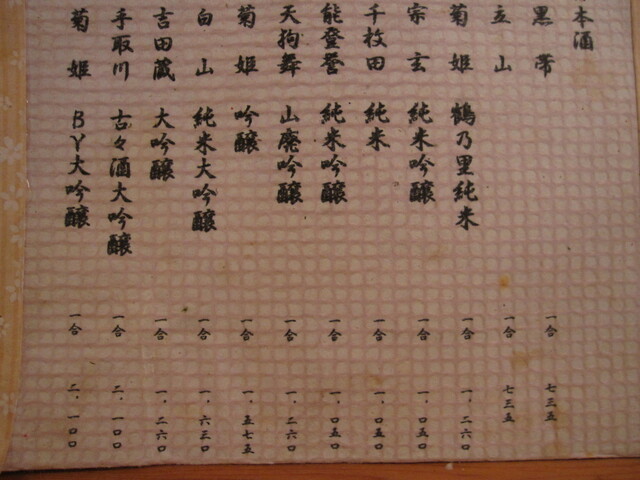 本酒
黒帯 一合 七三五
立山 一合 七三五
菊姫 鶴乃里純米 一合 一、二六〇
宗玄 純米吟醸 一合 一、〇五〇
千枚田 純米 一合 一、〇五〇
能登誉 純米吟醸 一合 一、〇五〇
天狗舞 山廃吟醸 一合 一、二六〇
菊姫 吟醸 一合 一、五七五
白山 純米大吟醸 一合 一、六三〇
吉田蔵 大吟醸 一合 一、二六〇
手取川 古々酒大吟醸 一合 二、一〇〇
菊姫 BY大吟醸 一合 二、一〇〇